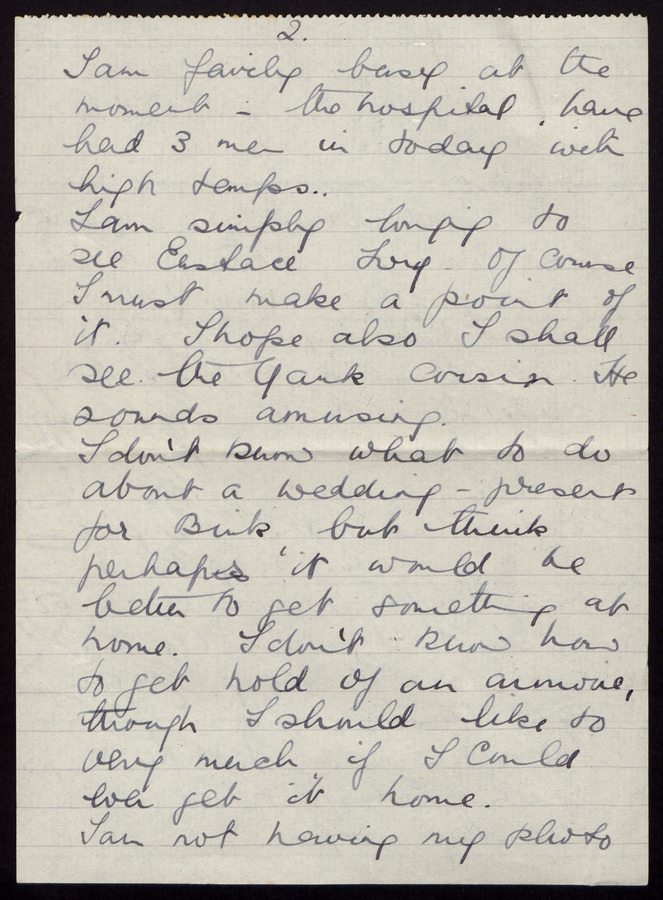 2.
I am fairly busy at the
moment - the hospital, have
had 3 men in today with
high temps..
I am simply longing to
see Eustace Tony. Of course
I must make a point of
it. I hope also I shall
see the Yank cousin. He
sounds amusing.
I don't know what to do
about a wedding - present
for Bink but think
perhaps it would be
better to get something at
home. I don't know how
to get hold of an
though I should like to
very much if I could
ever get it home.
I am not having my photo